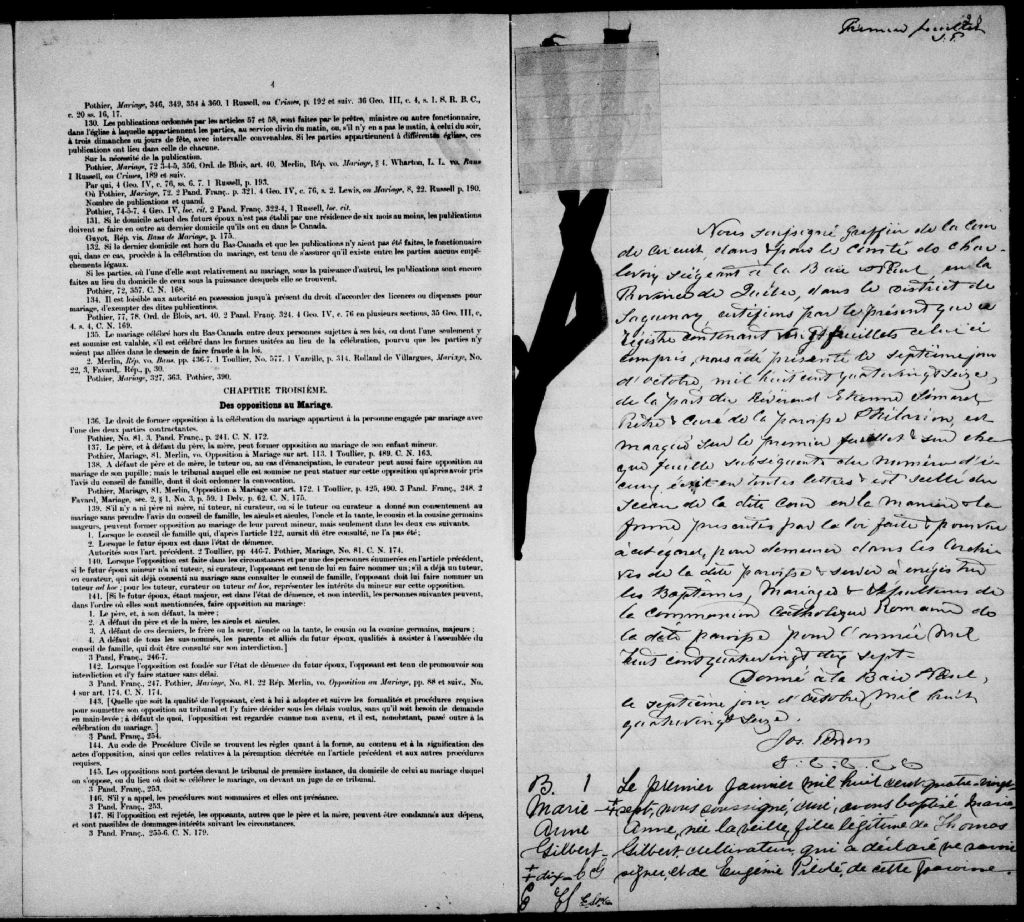 4
Pothier, Mariage, 346, 349, 354 à 360. 1 Russell, on Crimes, p. 192 et suiv. 36 Geo. III, c. 4, s. 1. S. R. B. C.,
c. 20 ss. 16, 17.
130. Les publications ordonnées par les articles 57 et 58, sont faites par le prêtre, ministre ou autre fonctionnaire,
dans l'église à laquelle appartiennent les parties, au service divin du matin, ou, s'il n'y en a pas le matin, à celui du soir,
à trois dimanches ou jours de fête, avec intervalle convenables. Si les parties appartiennent à différents église, ces
publications ont lieu dans celle de chacune.
Sur la nécessité de la publication.
Pothier, Mariage, 72 3-4-5, 356. Ord. de Blois, art. 40. Merlin, Rép. vo. Mariage, § 4. Wharton, L. L. vo. Bans
1 Russell, on Crimes, 189 et suiv.
Par qui, 4 Geo. IV, c. 76, ss. 6. 7. 1 Russell, p. 193.
Où Pothier, Mariage, 72. 2 Pand. Franç. p. 321. 4 Geo. IV, c. 76, s. 2. Lewis, on Mariage, 8, 22. Russell p. 190.
Nombre de publications et quand.
Pothier, 74-5-7. 4 Geo. IV, loc. cit. 2 Pand. Franç. 322-4, 1 Russell, loc. cit.
131. Si le domicile actuel des futurs époux n'est pas établi par une résidence de six mois au moins, les publications
doivent se faire en outre au dernier domicile qu'ils ont eu dans le Canada.
Guyot, Rép. vis. Bans de Mariage, p. 175.
132. Si la dernier domicile est hors du Bas-Canada et que les publications n'y aient pas été faites, le fonctionnaire
qui, dans ce cas, procède à la célébration du mariage, est tenu de s'assurer qu'il existe entre les parties aucuns empê-
chements légaux.
Si les parties, où l'une d'elle sont relativement au mariage, sous la puissance d'autrui, les publications sont encore
faites au lieu du domicile de ceux sous la puissance desquels elle se trouvent.
Pothier, 72, 357. C. N. 168.
134. Il est loisible aux autorité en possession jusqu'à présent du droit d'accorder des licences ou dispenses pour
mariage, d'exempter des dites publications.
Pothier, 77, 78. Ord. de Blois, art. 40. 2 Pand. Franç. 324. 4 Geo. IV, c. 76 en plusieurs sections, 35 Geo. III, c.
4, s. 4, C. N. 169.
135. Le mariage célébré hors du Bas-Canada entre deux personnes sujettes à ses lois, ou dont l'une seulement y
est soumise est valable, s'il est célébré dans les formes usitées au lieu de la célébration, pourvu que les parties n'y
soient pas allées dans le dessein de faire fraude à la loi.
2. Merlin, Rép. vo. Bans, pp. 436-7. 1 Toullier, No. 577. 1 Vazville, p. 314. Rolland de Villargues, Mariage, No.
22, 3, Favard., Rép., p, 30.
Pothier, Mariage, 327, 363. Pothier, 390.
CHAPITRE TROISIÈME.
Des oppositions au Mariage.
136. Le droit de former opposition à la célébration du mariage appartient à la personne engagée par mariage avec
l'une des deux parties contractantes.
Pothier, No. 81. 3. Pand. Franç., p. 241. C. N. 172.
137. Le père, et à défaut du père, la mère, peut former opposition au mariage de son enfant mineur.
Pothier, Mariage, 81. Merlin, vo. Opposition à Mariage sur art. 113. 1 Toullier, p. 489. C. N. 163.
138. A défaut de père et de mère, le tuteur ou, au cas d'émancipation, le curateur peut aussi faire opposition au
mariage de son pupille; mais le tribunal auquel elle est soumise ne peut statuer sur cette opposition qu'après avoir pris
l'avis du conseil de famille, dont il doit ordonner la convocation.
Pothier, Mariage, 81. Merlin, Opposition à Mariage sur art. 172. 1 Toullier, p. 425, 490. 3 Pand. Franç., 248. 2
Favard, Mariage, sec. 2, § 1, No. 3, p. 59. 1 Delv. p. 62. C. N. 175.
139. S'il n'y a ni père ni mère, ni tuteur, ni curateur, ou si le tuteur ou curateur a donné son consentement au
mariage sans prendre l'avis du conseil de famille, les aïeuls et aïeules, l'oncle et la tante, le cousin et la cousine germains
majeurs, peuvent former opposition au mariage de leur parent mineur, mais seulement dans les deux cas suivants.
1. Lorsque le conseil de famille qui, d'après l'article 122, aurait dû être consulté, ne l'a pas été;
2. Lorsque le futur époux est dans l'état de démence.
Autorités sous l'art. précédent. 2 Toullier, pp 446-7. Pothier, Mariage, No. 81. C. N. 174.
140. Lorsque l'opposition est faite dans les circonstances et par une des personnes énumérées en l'article précédent,
si le futur époux mineur n'a ni tuteur, ni curateur, l'opposant est tenu de lui en faire nommer un; s'il a déjà un tuteur,
ou curateur, qui ait déjà consenti au mariage sans consulter le conseil de famille, l'opposant doit lui faire nommer un
tuteur ad hoc; pour les tuteur, curateur ou tuteur ad hoc, représenter les intérêts du mineur sur cette opposition.
141. [Si le futur époux, étant majeur, est dans l'état de démence, et non interdit, les personnes suivantes peuvent,
dans l'ordre où elles sont mentionnées, faire opposition au mariage:
1. Le père, et, à son défaut, la mère;
2. A défaut du père et de la mère, les aïeuls et aïeules.
3. A défaut de ces derniers, le frère ou la sœur, l'oncle ou la tante, le cousin ou la cousine germains, majeurs;
4. A défaut de tous les sus-nommés, les parents et alliés du futur époux, qualifiés à assister à l'assemblée du
conseil de famille, qui doit être consulté sur son interdiction.]
3 Pand, Franç., 246-7.
142. Lorsque l'opposition est fondée sur l'état de démence du futur époux, l'opposant est tenu de promouvoir son
interdiction et d'y faire statuer sans délai.
3 Pand. Franç., 247. Pothier, Mariage, No. 81. 22 Rép. Merlin, vo. Opposition au Mariage, pp. 88 et suiv., No.
4 sur art. 174. C. N. 174.
143. [Quelle que soit la qualité de l'opposant, c'est à lui à adopter et suivre les formalités et procédures requises
pour soumettre son opposition au tribunal et l'y faire décider sous les délais voulus, sans qu'il soit besoin de demande
en main-levée; à défaut de quoi, l'opposition est regardée comme non avenu, et il est, nonobstant, passé outre à la
célébration du mariage.]
3 Pand. Franç., 254.
144. Au code de Procédure Civile se trouvent les règles quant à la forme, au contenu et à la signification des
actes d'opposition, ainsi que celles relatives à la péremption décrétée en l'article précédent et aux autres procédures
requises.
145. Les oppositions sont portées devant le tribunal de première instance, du domicile de celui au mariage duquel
on s'oppose, ou du lieu où doit se célébrer le mariage, ou devant un juge de ce tribunal.
3 Pand. Franç., 253.
146. S'il y a appel, les procédures sont sommaires et elles ont préséance.
3 Pand. Franç., 253.
147. Si l'opposition est rejetée, les opposants, autres que le père et la mère, peuvent être condamnés aux dépens,
et sont passibles de dommages-intérêts suivant les circonstances.
3 Pand. Franç., 255-6. C. N. 179.
Premier feuillet
J. P.
Nous soussigné greffier de la Cour
de Circuit, dans & pour le Comté de Char-
levoix siégeant à la Baie St Paul, en la
Province de Québec, dans le district de
Saguenay certifions par le présent que ce
registre contenant vingt feuillets celui ci
compris, nous a été présenté le septième jour
d'Octobre, mil huit cent quatrevingt seize,
de la part du Révérend Etienne Simard
Prêtre & Curé de la paroisse St Hilarion, est
marqué sur le premier feuillet & sur cha
que feuille subséquente du numéro d'i-
celui écrit en toutes lettres & est scellé du
Sceau de la dite cour en la manière & la
forme prescrites par la loi faite & pourvue
à cet égard, pour demeurer dans les Archi-
ves de la dite paroisse & servir à enregistrer
les Baptêmes, Mariages & Sépultures de
la communion Catholique Romaine de
la dite paroisse pour l'année mil
huit cent quatrevingt dix sept.
Donné à la Baie St Paul,
le septième jour d'Octobre, mil huit
quatrevingt seize.
Jos. Perron
G. C. C. C. C.
B. 1
Marie
Anne
Gilbert
‡ dix-
Le premier Janvier mil huit cent quatre-vingt
‡ sept, nous soussigné, curé, avons baptisé Marie
Anne, née la veille, fille légitime de Thomas
Gilbert cultivateur qui a déclaré ne savoir
signer, et de Eugénie Pilote, de cette paroisse.